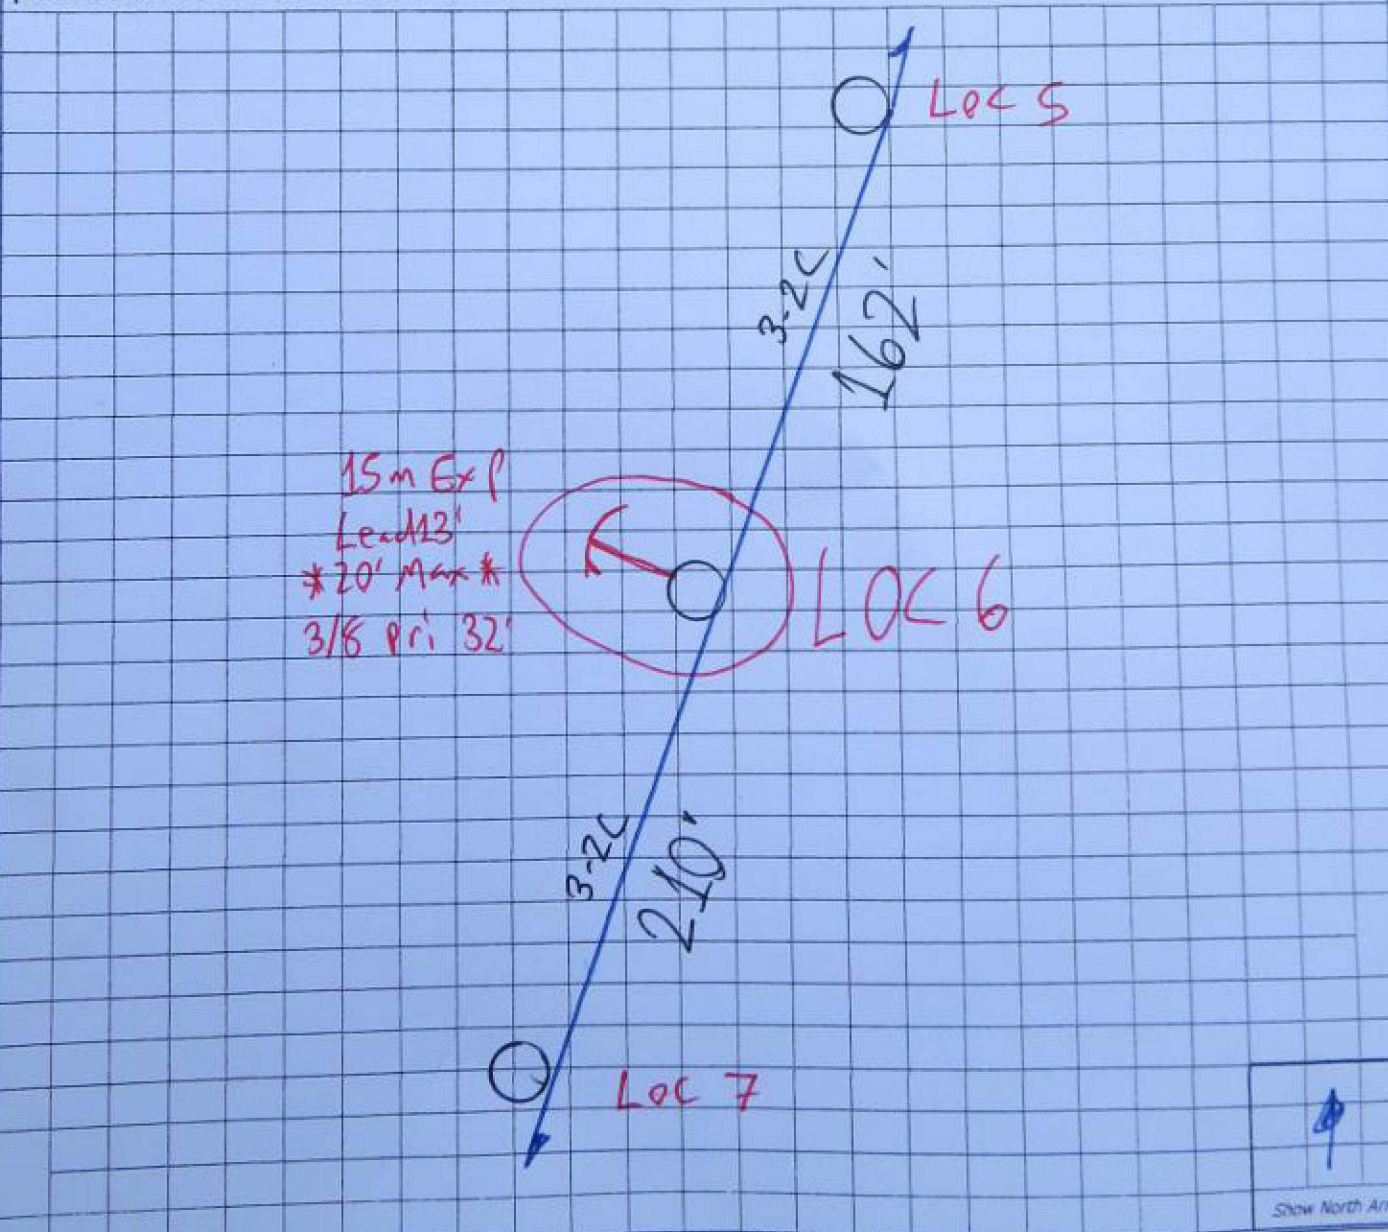 Loc 5
3-2C
162'
15m Exp
Lead 13'
*20' Max*
3/8 pri 32'
LOC 6
3-2C
210'
Loc 7
Show North Ar